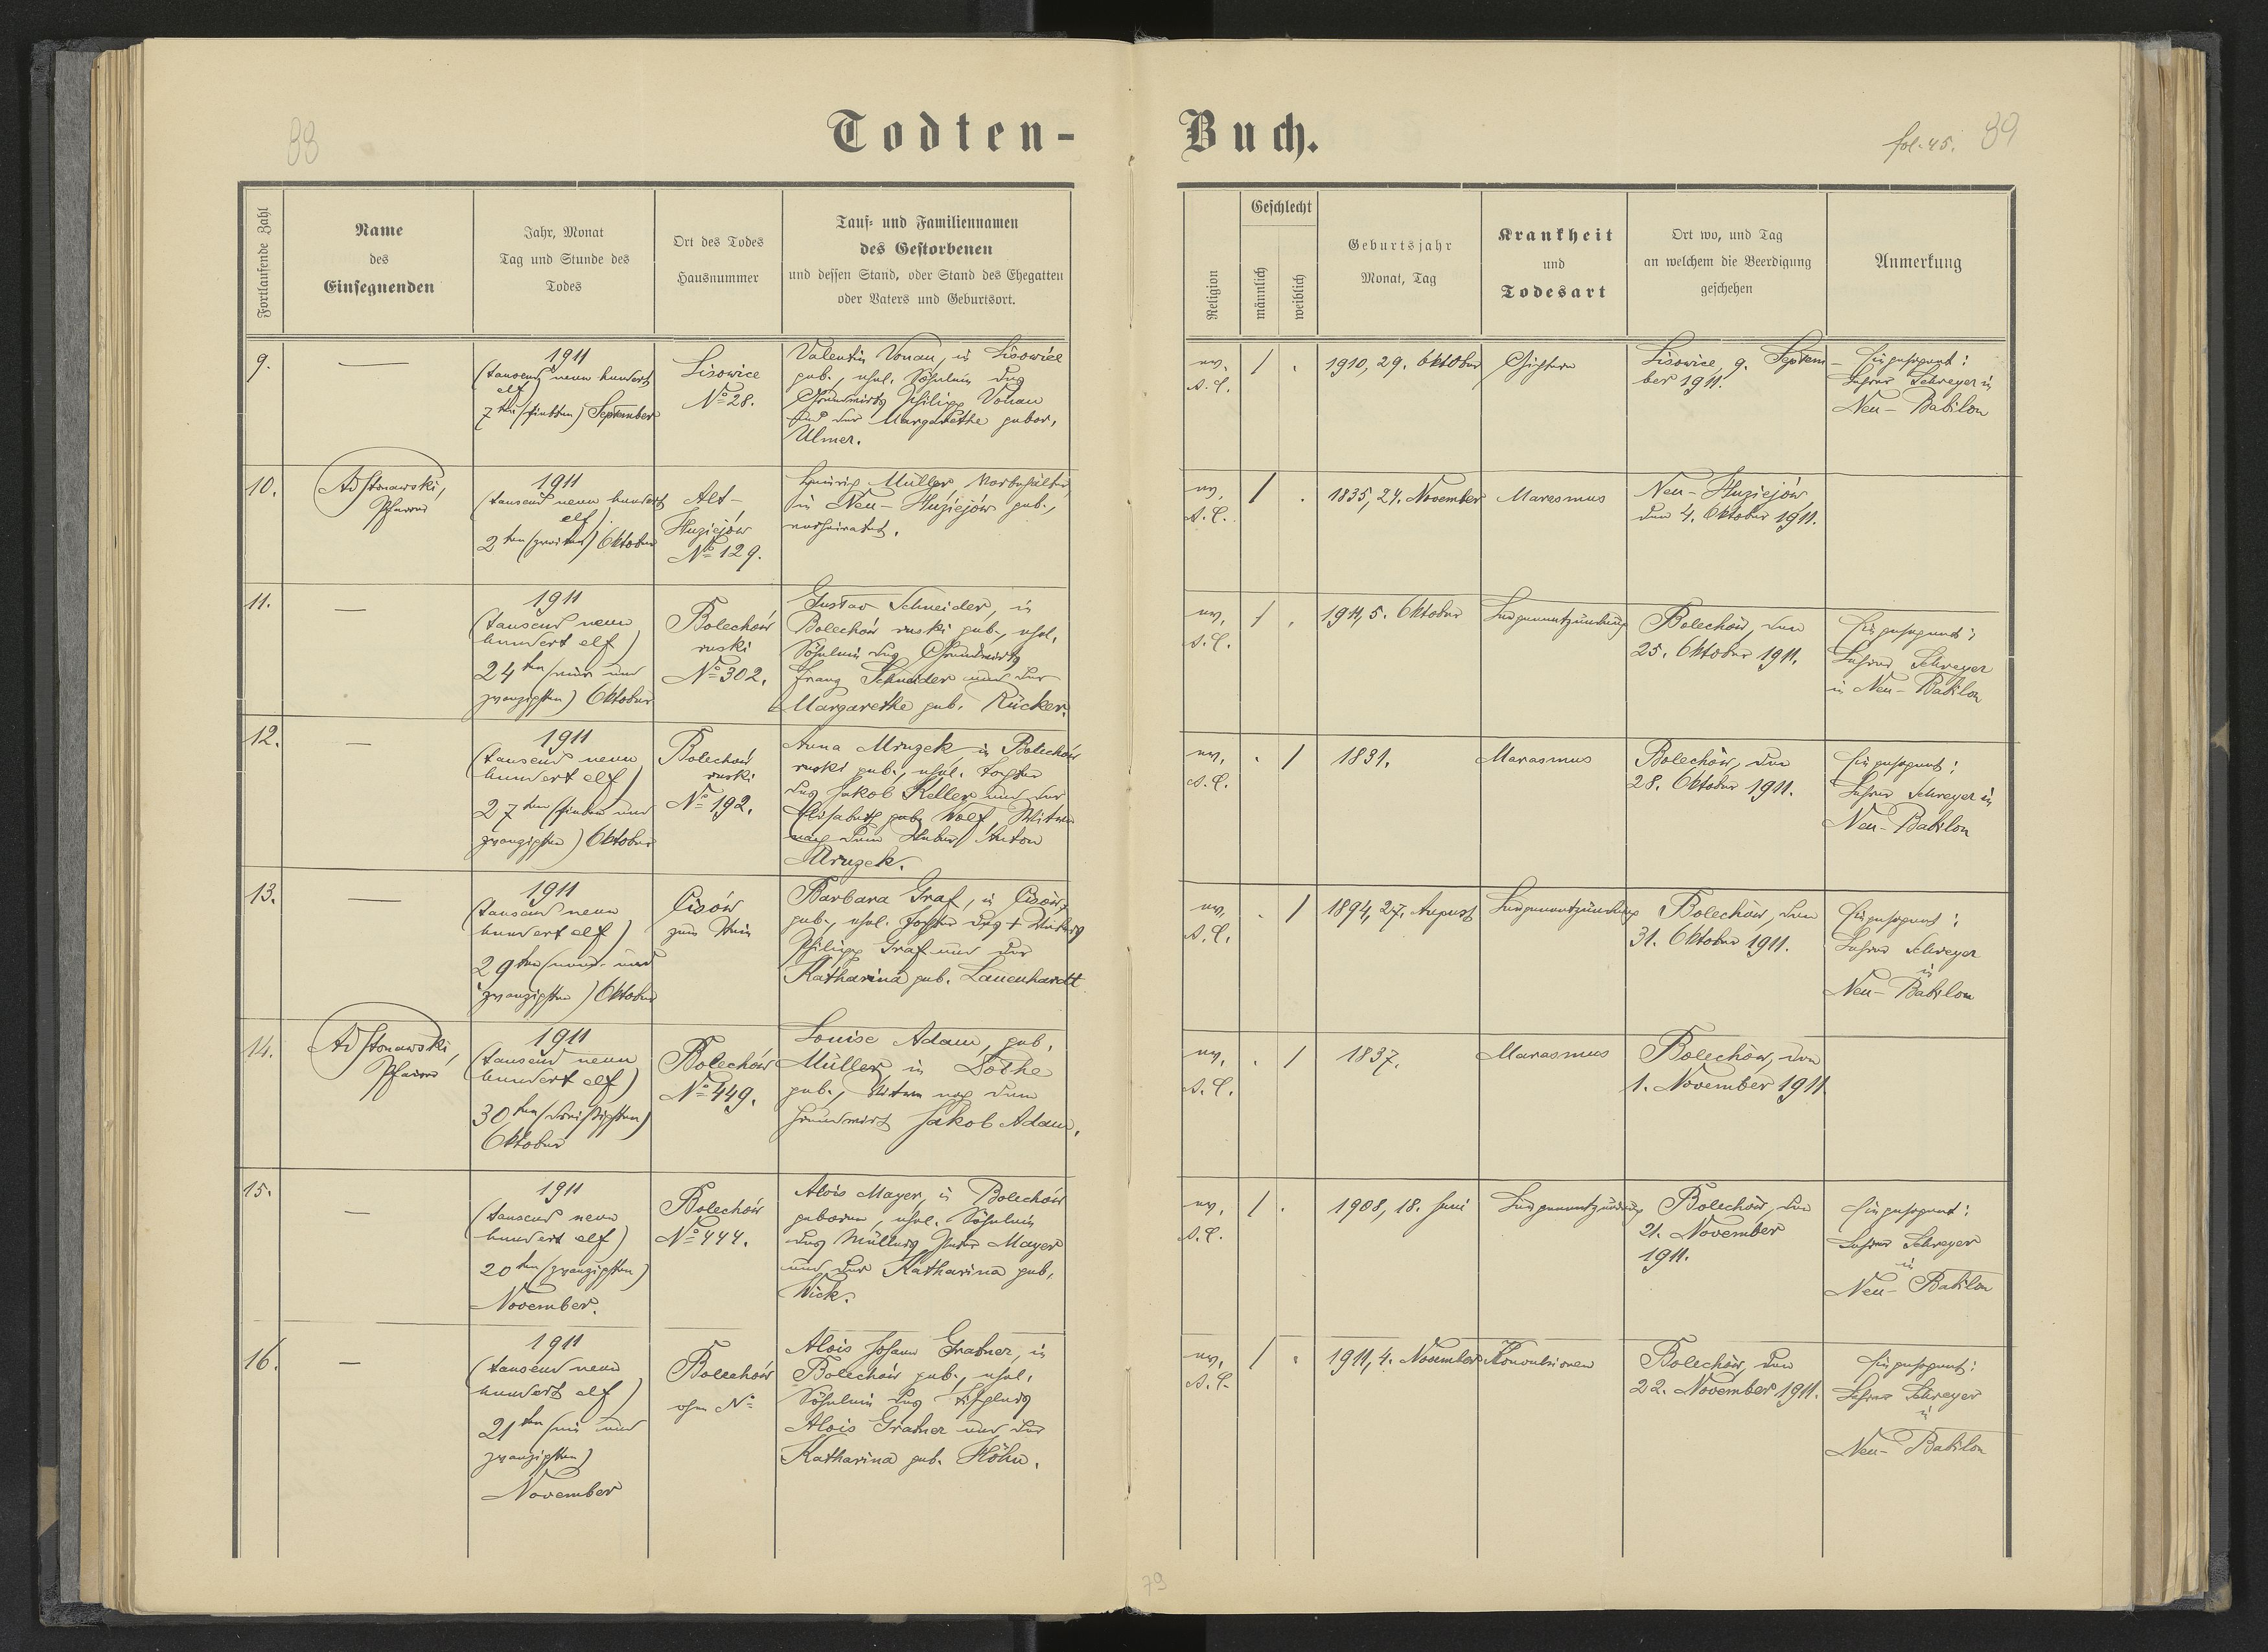 88
Todten-
Buch.
fol. 45. 89
Fortlaufende Zahl
Name
des
Einsegnenden
Jahr, Monat
Tag und Stunde des
Todes
Ort des Todes
Hausnummer
Tauf- und Familiennamen
des Gestorbenen
und dessen Stand, oder Stand des Ehegatten
oder Vaters und Geburtsort.
Religion
Geschlecht
männlich
weiblich
Geburtsjahr
Monat, Tag
Krankheit
und
Todesart
Ort wo, und Tag
an welchem die Beerdigung
geschehen
Anmerkung
9.
—
1911
(tausend neun hundert
elf
7ten (siebten) September
Lisowice
No 28.
Valentin Vonau, in Lisowice
geb., ehel. Söhnlein des
Grundwirts Philipp Vonau
und der Margarethe gebor.
Ulmer.
ev.
A. C.
/ .
1910, 29. Oktober
Gichtern
Lisowice, 9. Septem-
ber 1911.
Eingesegnet:
Lehrer Schreyer in
Neu-Babilon
10.
Ad Stonawski,
Pfarrer
1911
(tausend neun hundert
elf)
2ten (zweiten) Oktober
Alt-
Huziejów
No 129.
Heinrich Müller, Vorbehälter,
in Neu-Huziejów geb.,
verheiratet.
ev.
A. C.
/ .
1835, 24. November
Marasmus
Neu-Huziejów,
den 4. Oktober 1911.
11.
—
1911
(tausend neun
hundert elf)
24ten (vier und
zwanzigsten) Oktober
Bolechów
ruski
No 302.
Gustav Schneider, in
Bolechów ruski geb., ehel.
Söhnlein des Grundwirts
Franz Schneider und der
Margarethe geb. Rücker.
ev.
A. C.
/ .
1911, 5. Oktober
Lungenentzündung
Bolechów, den
25. Oktober 1911.
Eingesegnet:
Lehrer Schreyer
in Neu-Babilon
12.
—
1911
(tausend neun
hundert elf)
27ten (sieben und
zwanzigsten) Oktober
Bolechów
ruski
No 192.
Anna Mruzek in Bolechów
ruski geb., ehel. Tochter
des Jakob Keller und der
Elisabeth geb. Wolf, Witwe
nach dem Anton
Mruzek.
ev.
A. C.
. /
1831.
Marasmus
Bolechów, den
28. Oktober 1911.
Eingesegnet:
Lehrer Schreyer in
Neu-Babilon
13.
—
1911
(tausend neun
hundert elf)
29ten (neun und
zwanzigsten) Oktober
Cisów
Barbara Graf, in Cisów
geb., ehel. Tochter des +
Philipp Graf und der
Katharina geb. Lauenhardt
ev.
A. C.
. /
1894, 27. August
Lungenentzündung
Bolechów, den
31. Oktober 1911.
Eingesegnet:
Lehrer Schreyer
in
Neu-Babilon
14.
Ad Stonawski,
Pfarrer
1911
(tausend neun
hundert elf)
30ten (dreißigsten)
Oktober
Bolechów
No 449.
Louise Adam, geb.
Müller, in
geb., Witwe nach dem
Grundwirt Jakob Adam.
ev.
A. C.
. /
1837.
Marasmus
Bolechów, den
1. November 1911.
15.
—
1911
(tausend neun
hundert elf)
20ten (zwanzigsten)
November.
Bolechów
No 444.
Alois Mayer, in Bolechów
geboren, ehel. Söhnlein
des Müllers Peter Mayer
und der Katharina geb.
Wick.
ev.
A. C.
/ .
1908, 18. Juni
Lungenentzündung
Bolechów, den
21. November
1911.
Eingesegnet:
Lehrer Schreyer
in
Neu-Babilon
16.
—
1911
(tausend neun
hundert elf)
21ten (ein und
zwanzigsten)
November
Bolechów
ohne No
Alois Johann Grabner, in
Bolechów geb., ehel.
Söhnlein des Tischlers
Alois Grabner und der
Katharina geb. Höhn.
ev.
A. C.
/ .
1911, 4. November
Konvulsionen
Bolechów, den
22. November 1911.
Eingesegnet:
Lehrer Schreyer
in
Neu-Babilon
79